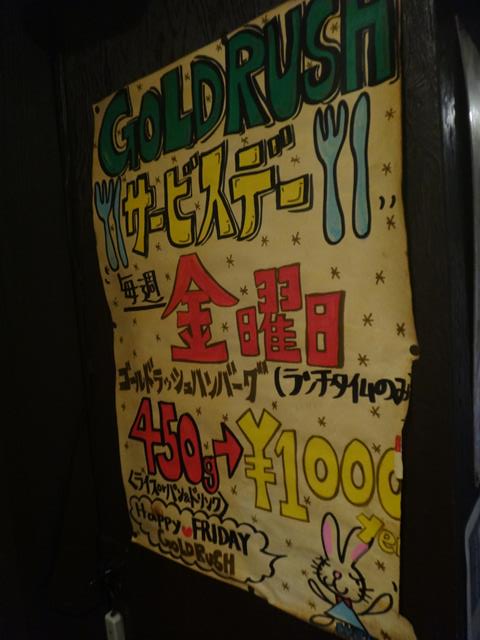 GOLDRUSH
サービスデー
毎週 金曜日
ゴールドラッシュハンバーグ (ランチタイムのみ
450g→¥1000
yen
〈ライスorパン&ドリンク〉
Happy FRIDAY
GOLDRUSH